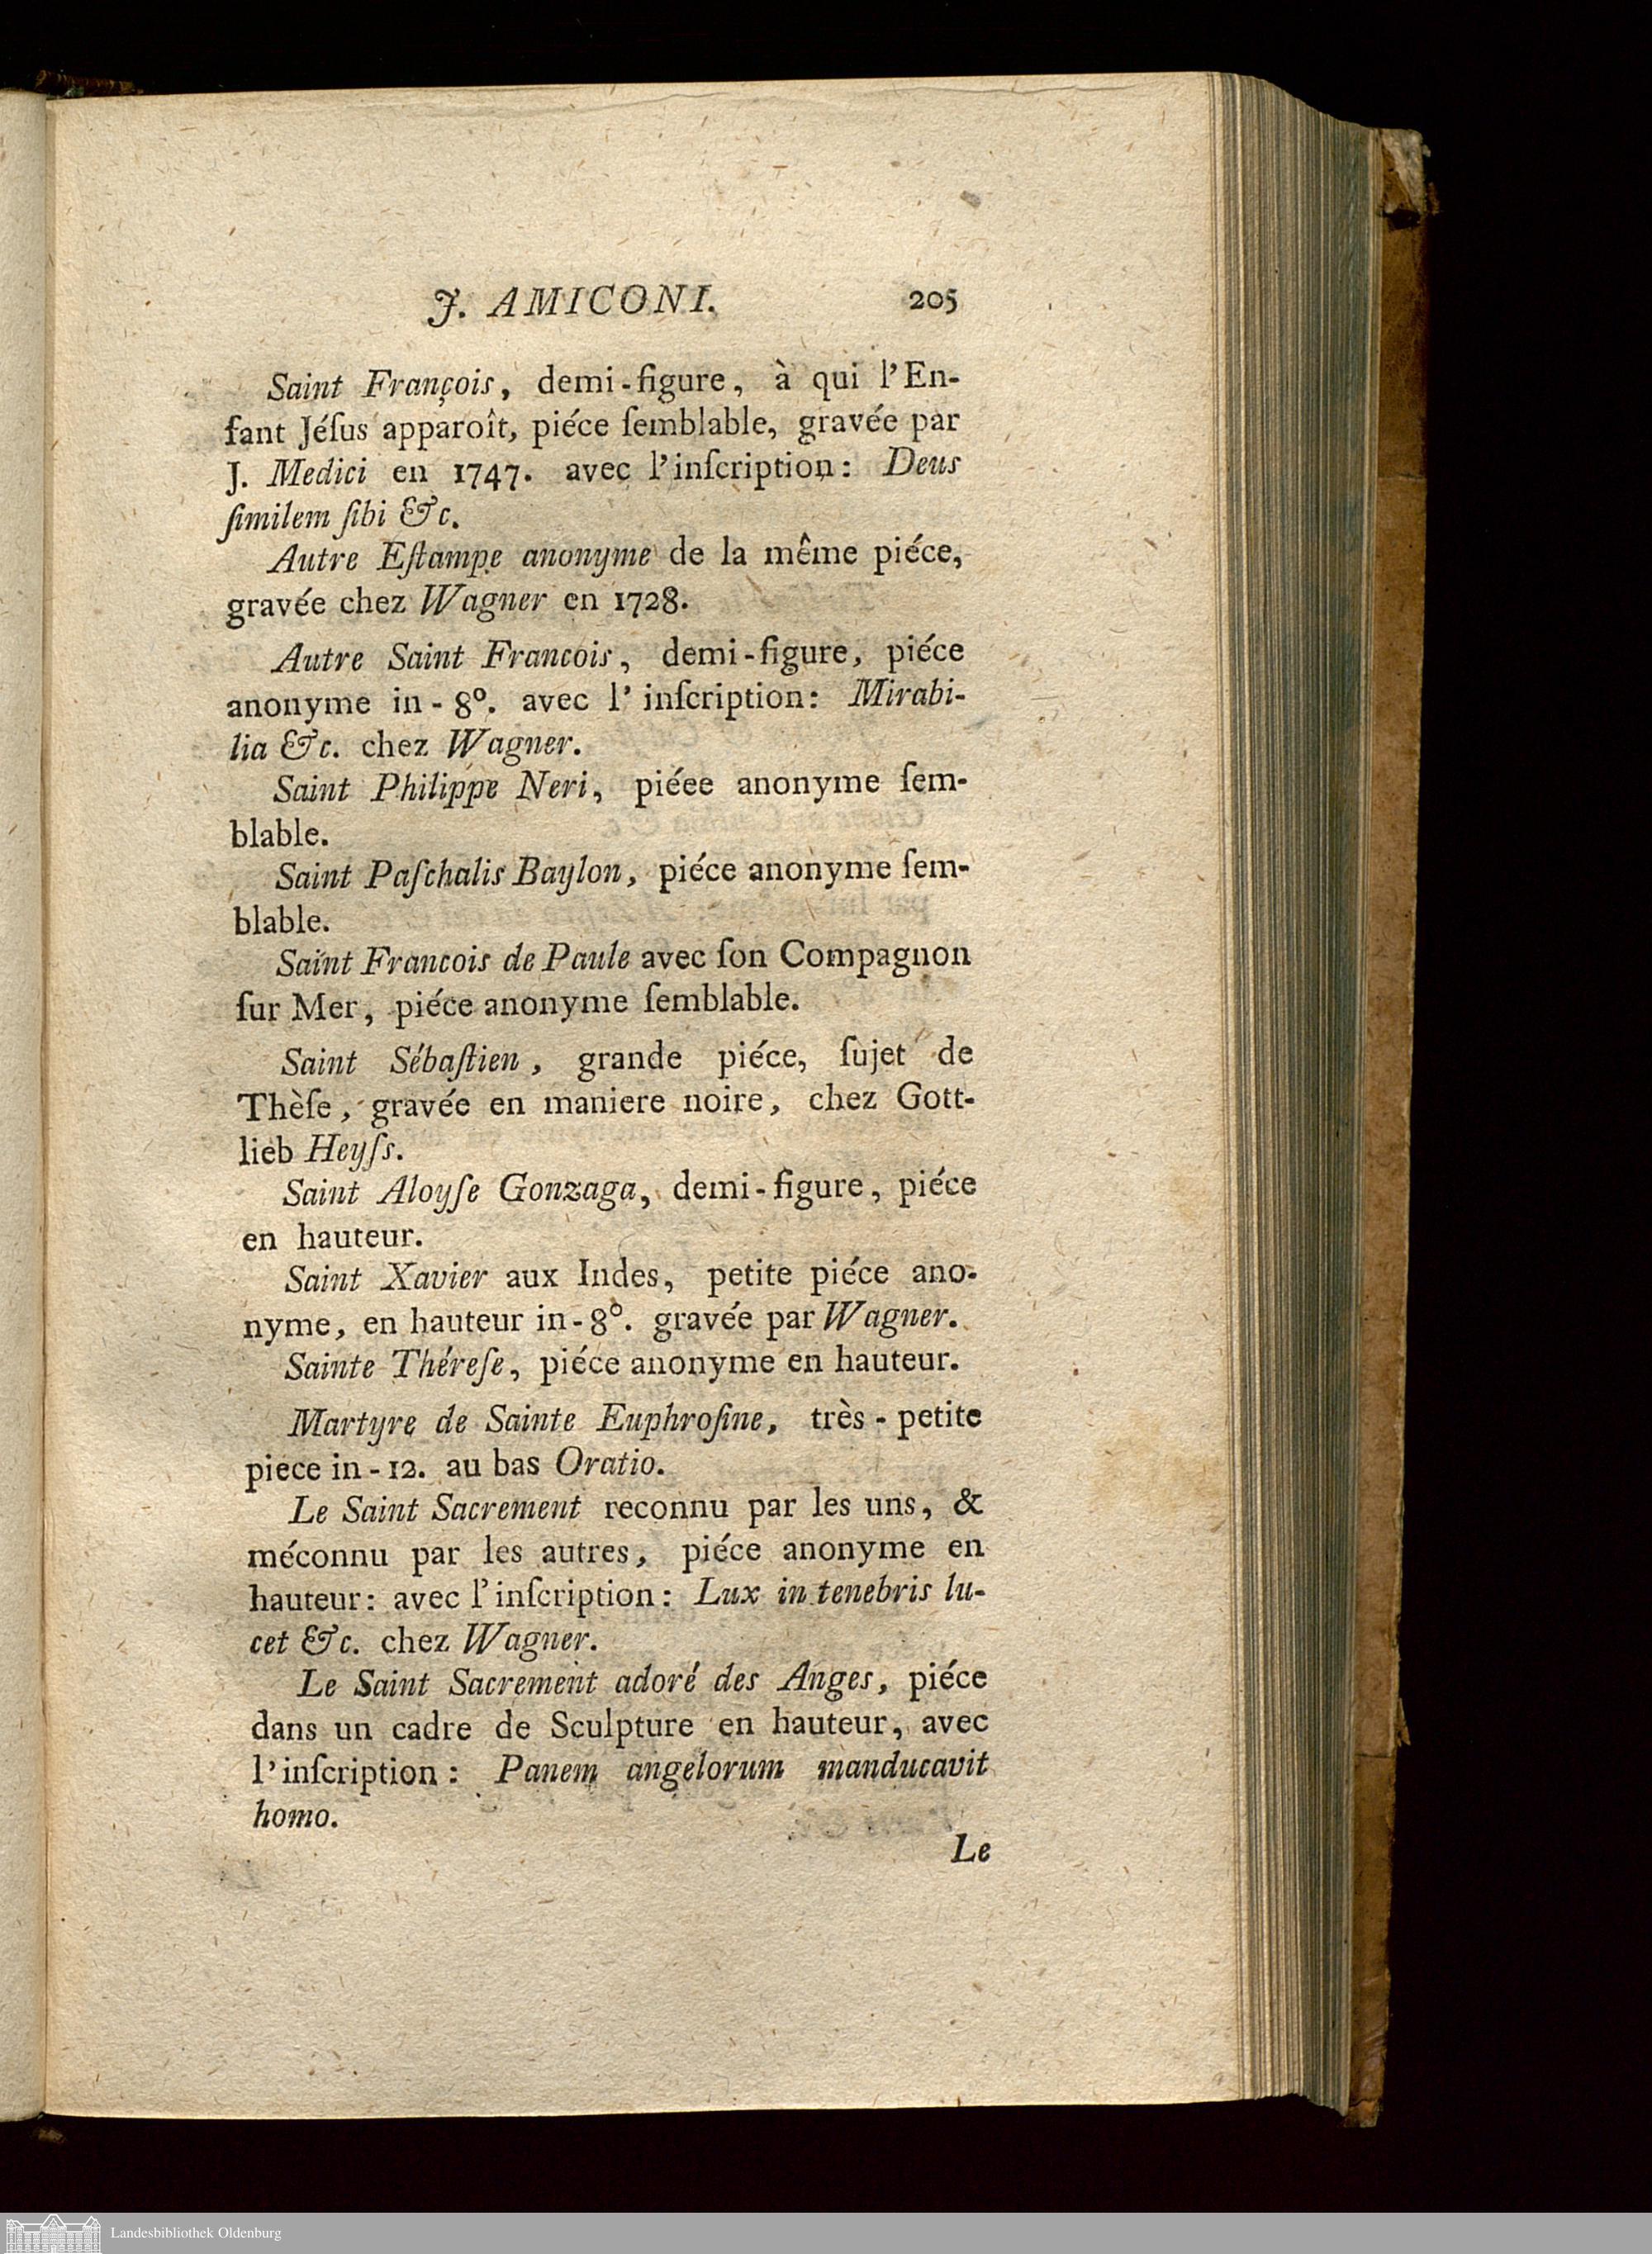 J. AMICONI. 205
Saint François, demi-figure, à qui l'En-
fant Jéſus apparoît, piéce ſemblable, gravée par
J. Medici en 1747. avec l'inſcription: Deus
ſimilem ſibi &c.
Autre Eſtampe anonyme de la même piéce,
gravée chez Wagner en 1728.
Autre Saint Francois, demi-figure, piéce
anonyme in-8°. avec l'inſcription: Mirabi-
lia &c. chez Wagner.
Saint Philippe Neri, piéee anonyme ſem-
blable.
Saint Paſchalis Baylon, piéce anonyme ſem-
blable.
Saint Francois de Paule avec ſon Compagnon
ſur Mer, piéce anonyme ſemblable.
Saint Sébaſtien, grande piéce, ſujet de
Thèſe, gravée en maniere noire, chez Gott-
lieb Heyſs.
Saint Aloyſe Gonzaga, demi-figure, piéce
en hauteur.
Saint Xavier aux Indes, petite piéce ano-
nyme, en hauteur in-8°. gravée par Wagner.
Sainte Théreſe, piéce anonyme en hauteur.
Martyre de Sainte Euphroſine, très-petite
piece in-12. au bas Oratio.
Le Saint Sacrement reconnu par les uns, &
méconnu par les autres, piéce anonyme en
hauteur: avec l'inſcription: Lux in tenebris lu-
cet &c. chez Wagner.
Le Saint Sacrement adoré des Anges, piéce
dans un cadre de Sculpture en hauteur, avec
l'inſcription: Panem angelorum manducavit
homo.
Le
Landesbibliothek Oldenburg